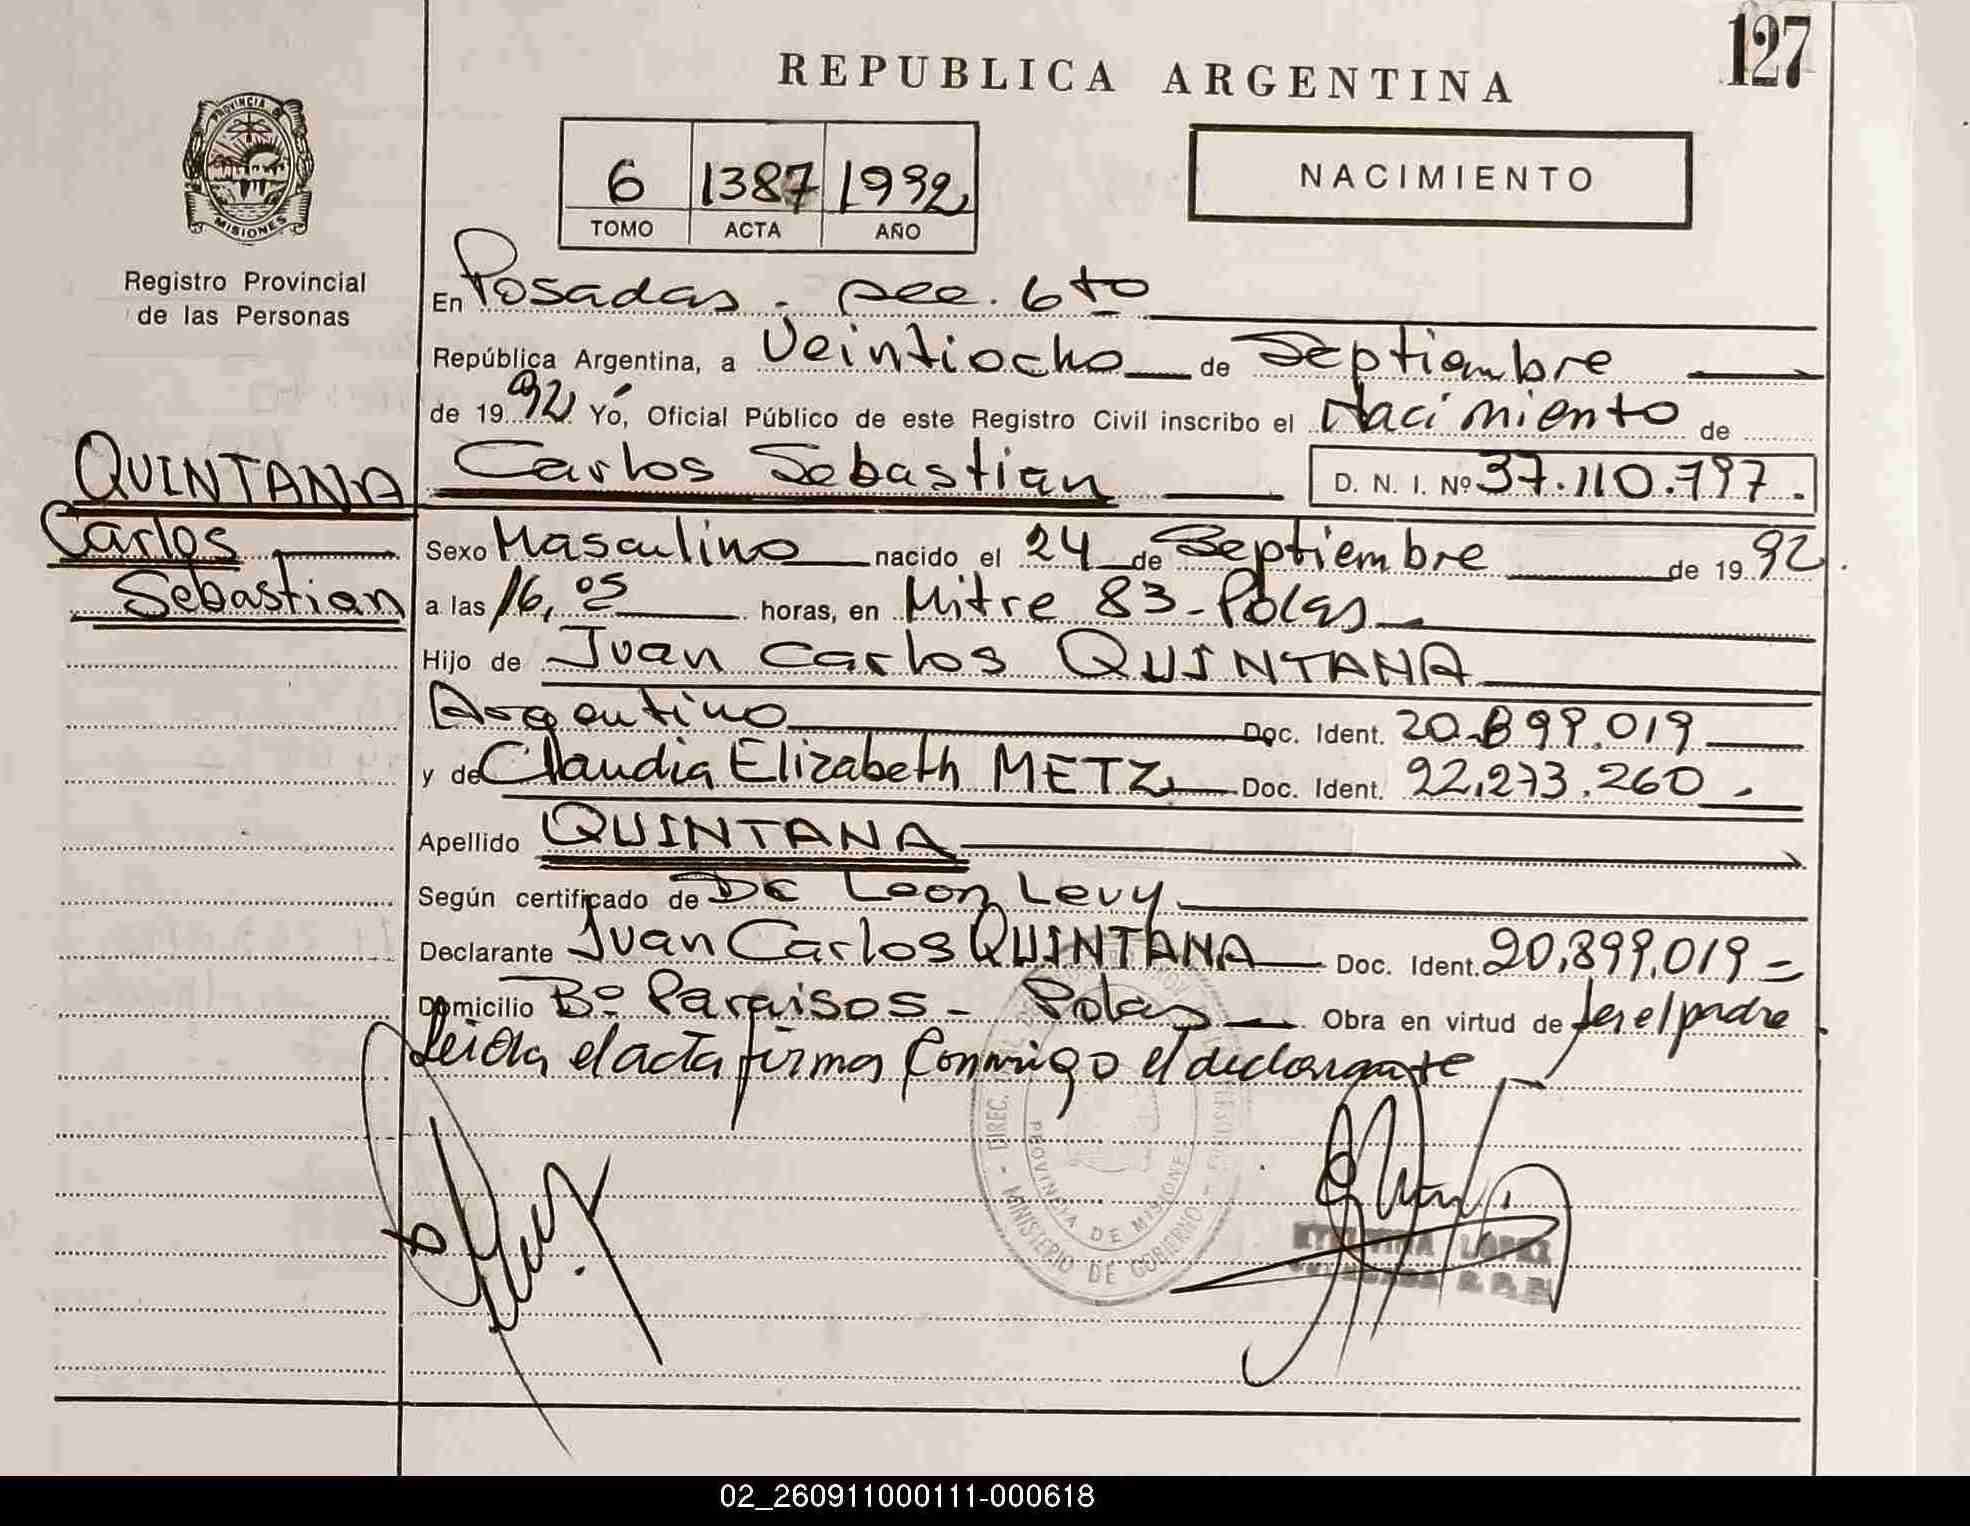 127
REPUBLICA ARGENTINA
PROVINCIA DE
MISIONES
Registro Provincial
de las Personas
6 1387 1992
TOMO ACTA AÑO
NACIMIENTO
En Posadas. sec. 6to
República Argentina, a Veintiocho de Septiembre
de 1992 Yó, Oficial Público de este Registro Civil inscribo el Nacimiento de
QUINTANA Carlos Sebastian D. N. I. Nº 37.110.797.
Carlos
Sebastian
Sexo Masculino nacido el 24 de Septiembre de 1992.
a las 16,05 horas, en Mitre 83 - Pdas
Hijo de Juan Carlos QUINTANA
Argentino Doc. Ident. 20.899.019
y de Claudia Elizabeth METZ Doc. Ident. 22.273.260.
Apellido QUINTANA
Según certificado de De Leon Levy
Declarante Juan Carlos QUINTANA Doc. Ident. 20,899,019
Domicilio Bº Paraisos - Pdas Obra en virtud de ser el padre
Leida el acta firma Conmigo el declarante
PROVINCIA DE MISIONES
MINISTERIO DE GOBIERNO
LOPEZ
02_260911000111-000618